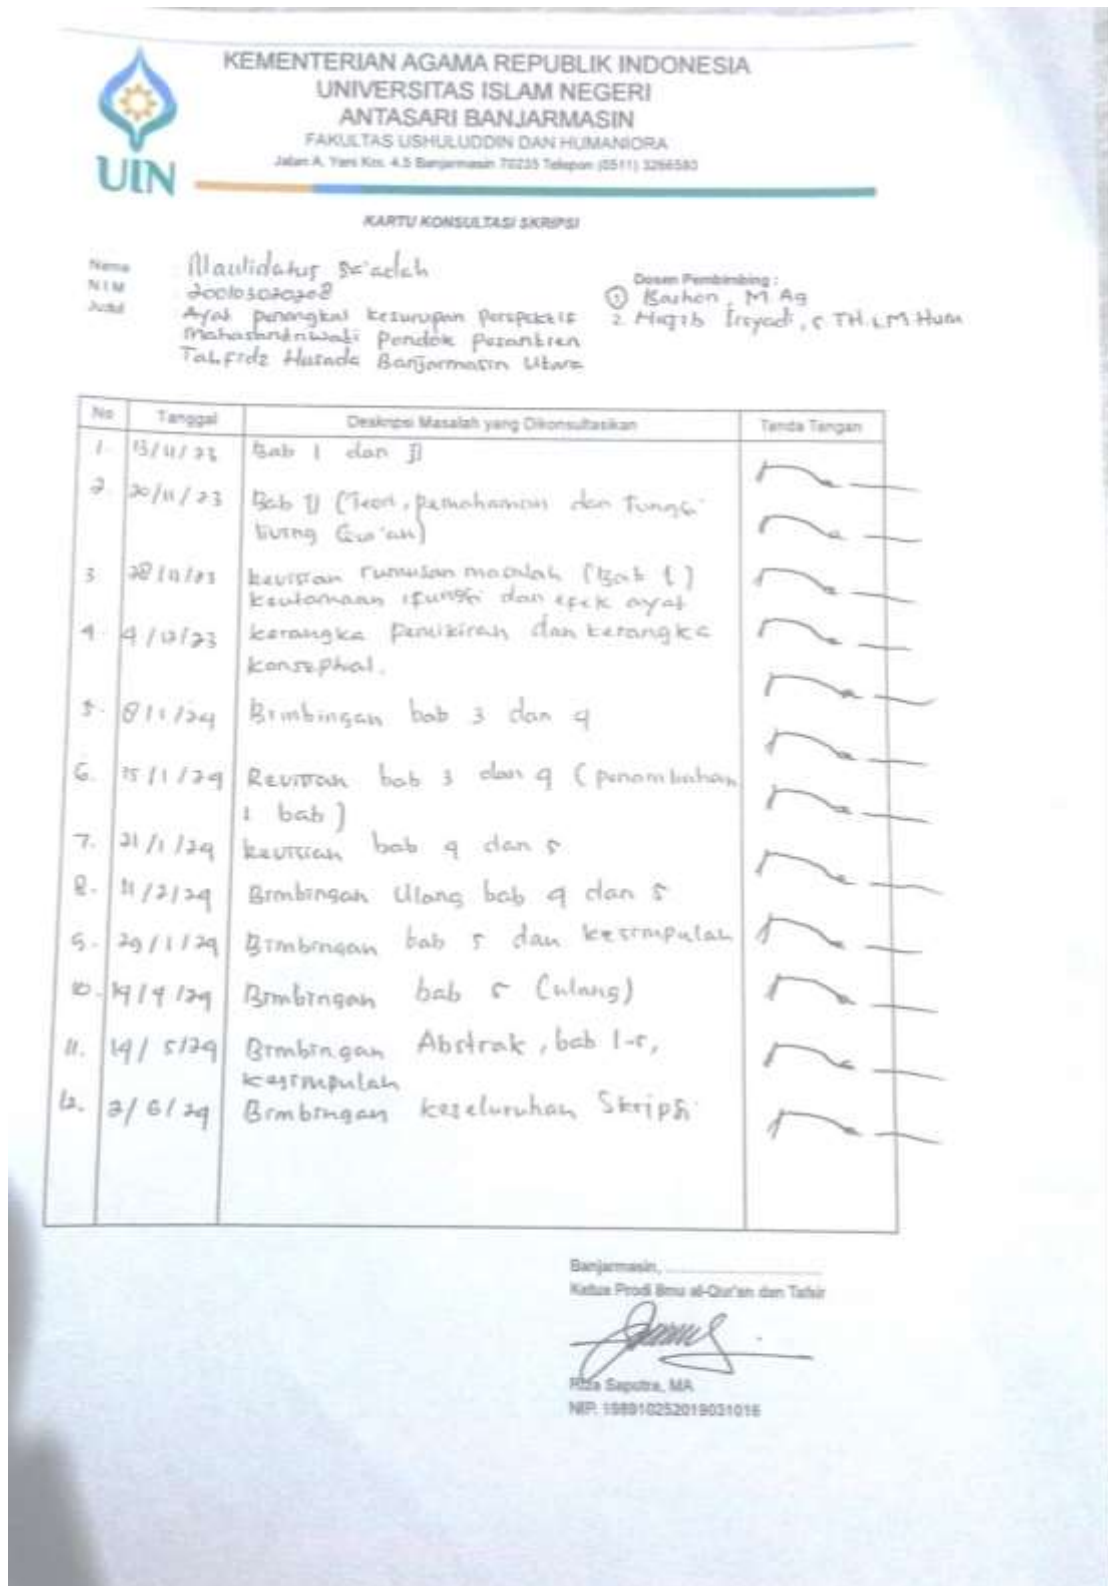 KEMENTERIAN AGAMA REPUBLIK INDONESIA
UNIVERSITAS ISLAM NEGERI
ANTASARI BANJARMASIN
FAKULTAS USHULUDDIN DAN HUMANIORA
Jalan A. Yani Km. 4,5 Banjarmasin 70235 Telepon (0511)
UIN
KARTU KONSULTASI SKRIPSI
Nama Maulidatus Sa'adah
NIM
Judul Ayat penangkal kesurupan Perspektif
Mahasantriwati Pondok Pesantren
Tahfidz Husada Banjarmasin Utara
Dosen Pembimbing :
1 Bashori, M.Ag
2. Irsyadi, S.TH.I, M.Hum
No Tanggal Deskripsi Masalah yang Dikonsultasikan Tanda Tangan
1. 13/11/23 Bab I dan II
2. 20/11/23 Bab II (Teori, pemahaman dan fungsi
living Qur'an)
3 28/11/23 Revisian rumusan masalah (Bab 1)
keutamaan, fungsi dan efek ayat
4. 4/12/23 kerangka pemikiran dan kerangka
konseptual.
5. 8/1/24 Bimbingan bab 3 dan 4
6. 15/1/24 Revisian bab 3 dan 4 (penambahan
1 bab)
7. 21/1/24 Revisian bab 4 dan 5
8. 11/2/24 Bimbingan Ulang bab 4 dan 5
9. 29/1/24 Bimbingan bab 5 dan kesimpulan
10. 14/4/24 Bimbingan bab 5 (ulang)
11. 14/5/24 Bimbingan Abstrak, bab 1-5,
kesimpulan
12. 2/6/24 Bimbingan keseluruhan Skripsi
Banjarmasin,
Ketua Prodi Ilmu al-Qur'an dan Tafsir
Riza Saputra, MA
NIP. 198910252019031016